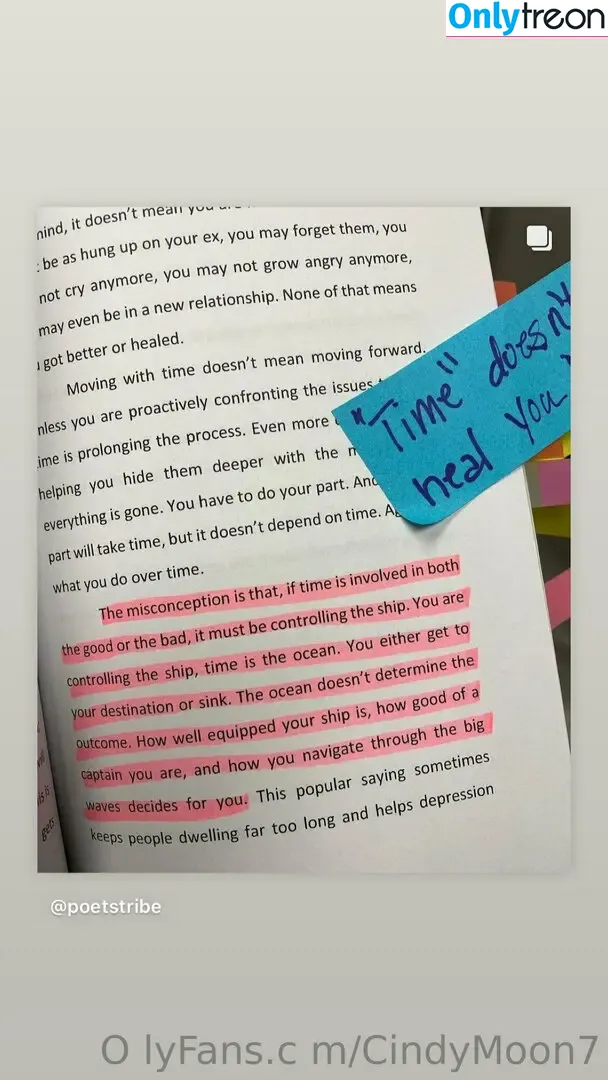 Onlytreon
mind, it doesn't mean you
be as hung up on your ex, you may forget them, you
not cry anymore, you may not grow angry anymore,
may even be in a new relationship. None of that means
got better or healed.
Moving with time doesn't mean moving forward.
nless you are proactively confronting the issues
ime is prolonging the process. Even more
helping you hide them deeper with the
everything is gone. You have to do your part. And
part will take time, but it doesn't depend on time.
what you do over time.
"Time" doesn't
heal you"
The misconception is that, if time is involved in both
the good or the bad, it must be controlling the ship. You are
controlling the ship, time is the ocean. You either get to
your destination or sink. The ocean doesn't determine the
outcome. How well equipped your ship is, how good of a
captain you are, and how you navigate through the big
waves decides for you. This popular saying sometimes
keeps people dwelling far too long and helps depression
gets
@poetstribe
O lyFans.c m/CindyMoon7